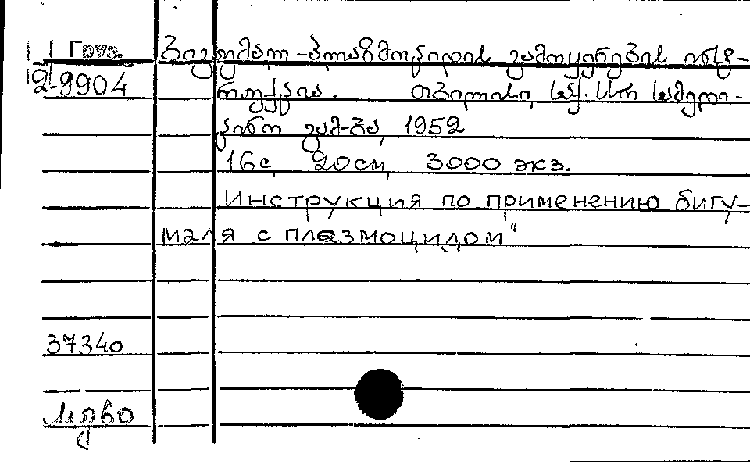 Груз.
2-9904
ბიგუმალ-პლაზმოციდის გამოყენების ინსტ-
რუქცია. თბილისი, საქ. სსრ სამედი-
ცინო გამ-ბა, 1952
16 с, 20 см, 3000 экз.
Инструкция по применению бигу-
маля с плазмоцидом"
37340